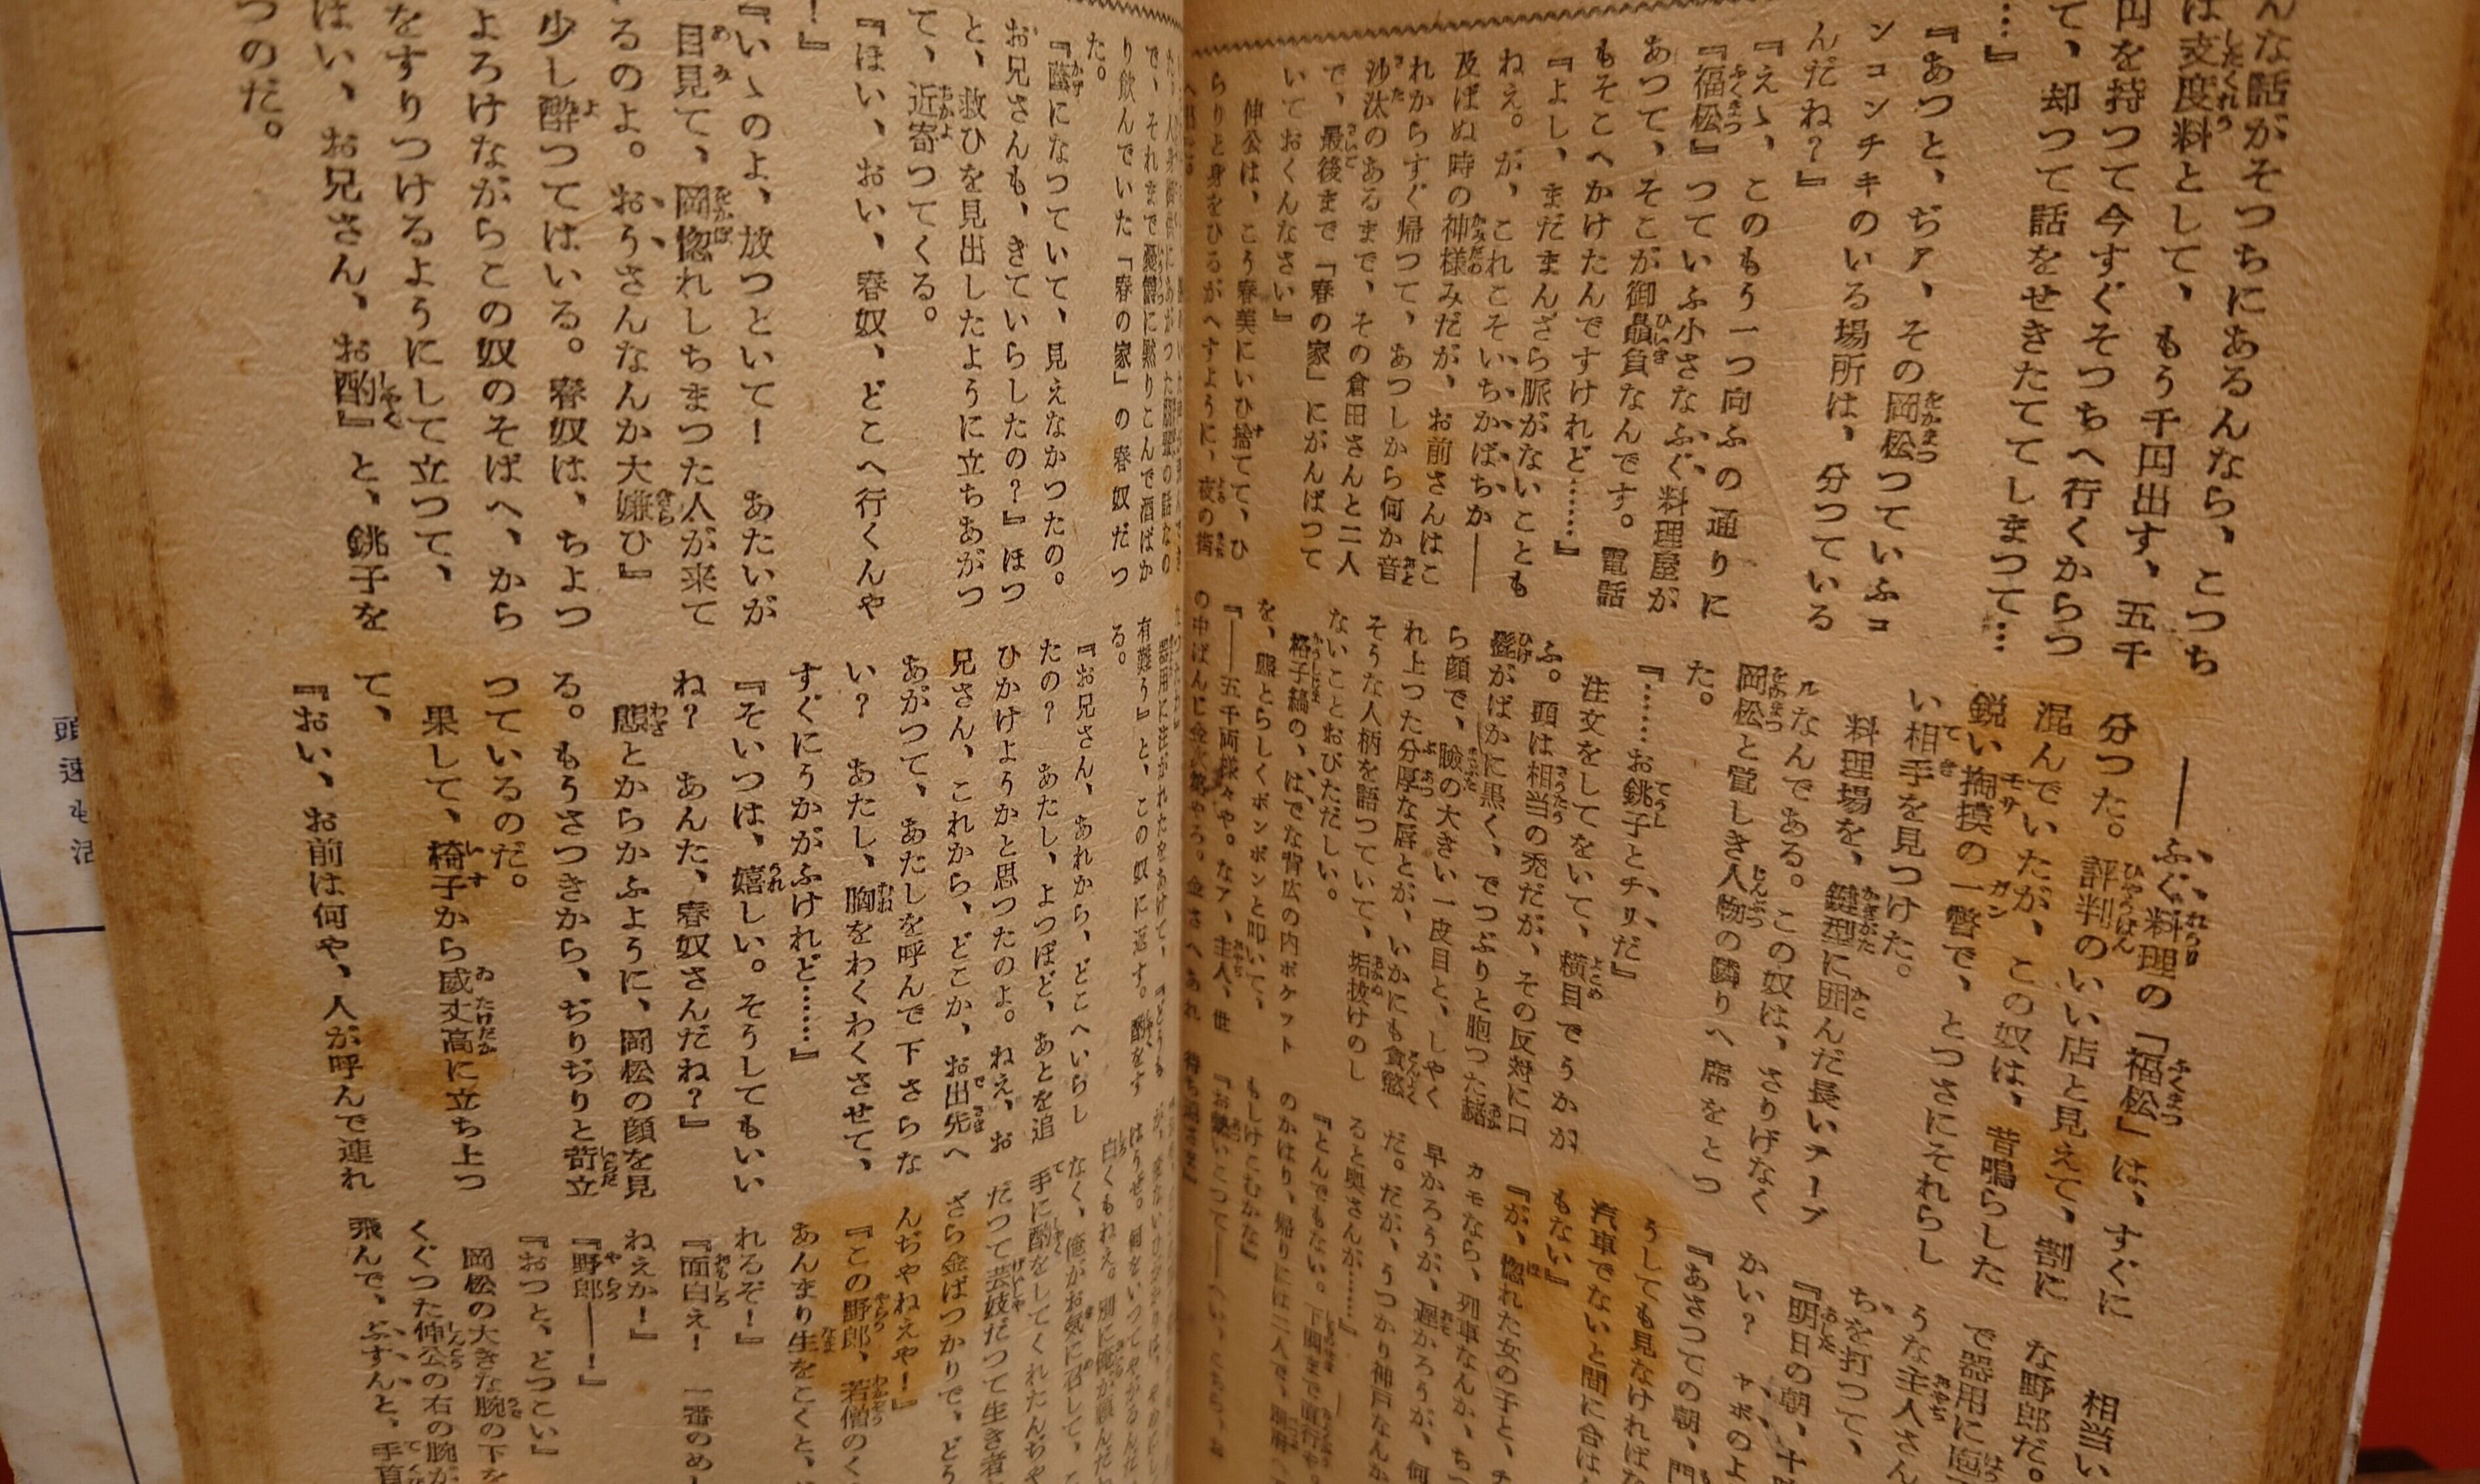 んな話がそつちにあるんなら、こつち
は支度料として、もう千円出す、五千
円を持つて今すぐそつちへ行くからつ
て、却つて話をせきたててしまつて…
…』
『あつと、ぢア、その岡松つていふコ
ンコンチキのいる場所は、分つている
んだね？』
『えゝ、このもう一つ向ふの通りに
『福松』つていふ小さなふぐ料理屋が
あつて、そこが御贔負なんです。電話
もそこへかけたんですけれど……』
『よし、まだまんざら脈がないことも
ねえ。が、これこそいちかばちか――
及ばぬ時の神様みだが、お前さんはこ
れからすぐ帰つて、あつしから何か音
沙汰のあるまで、その倉田さんと二人
で、最後まで「春の家」にがんばつて
いておくんなさい』
伸公は、こう春美にいひ捨てて、ひ
らりと身をひるがへすように、夜の街
へ
――ふぐ料理の「福松」は、すぐに
分つた。評判のいい店と見えて、割に
混んでいたが、この奴は、昔鳴らした
鋭い掏摸の一瞥で、とつさにそれらし
い相手を見つけた。
料理場を、鍵型に囲んだ長いテーブ
ルなんである。この奴は、さりげなく
岡松と覚しき人物の隣りへ席をとつ
た。
『……お銚子とチリだ』
注文をしてをいて、横目でうかが
ふ。頭は相当の禿だが、その反対に口
髭がばかに黒く、でつぷりと脂つた赭
ら顔で、瞼の大きい一皮目と、しやく
れ上つた分厚な唇とが、いかにも貪慾
そうな人柄を語つていて、垢抜けのし
ないことおびただしい。
格子縞の、はでな背広の内ポケット
を、熊とらしくポンポンと叩いて、
『――五千両様々や。なア、主人、世
の中ばんじ金次第やろ。金さへあれ
相当い
な野郎だ。
で器用に庖
うな主人さん
ちを打つて、
『明日の朝、十
かい？ ヤボのよ
『あさつての朝、門
うしても見なければな
汽車でないと間に合は
もない』
『が、惚れた女の子と、チ
カモなら、列車なんか、ちつ
早かろうが、遅かろうが、何
だ。だが、うつかり神戸なんか
ると奥さんが……』
『とんでもない。下関まで直行や。
のかはり、帰りには二人で、別府へ
もしけこむかな』
で、それまで憂鬱に黙りこんで酒ばか
り飲んでいた「春の家」の春奴だつ
た。
『蔭になつていて、見えなかつたの。
お兄さんも、きていらしたの？』ほつ
と、救ひを見出したように立ちあがつ
て、近寄つてくる。
『ほい、おい、春奴、どこへ行くんや
！』
『いゝのよ、放つといて！ あたいが
一目見て、岡惚れしちまつた人が来て
るのよ。おうさんなんか大嫌ひ』
少し酔つてはいる。春奴は、ちよつ
よろけながらこの奴のそばへ、から
をすりつけるようにして立つて、
はい、お兄さん、お酌』と、銚子を
つのだ。
有難う』と、この奴に返す。酌をす
る。
『お兄さん、あれから、どこへいらし
たの？ あたし、よつぽど、あとを追
ひかけようかと思つたのよ。ねえ、お
兄さん、これから、どこか、お出先へ
あがつて、あたしを呼んで下さらな
い？ あたし、胸をわくわくさせて、
すぐにうかがふけれど……』
『そいつは、嬉しい。そうしてもいい
ね？ あんた、春奴さんだね？』
態とからかふように、岡松の顔を見
る。もうさつきから、ぢりぢりと苛立
つているのだ。
果して、椅子から威丈高に立ち上つ
て、
『おい、お前は何や、人が呼んで連れ
はうぜ。何をいつてやがるんだ
白くもねえ。別に俺が頼んだわ
なく、俺がお気に召して、こ
手に酌をしてくれたんぢや
だつて芸妓だつて生き者
さら金ばつかりで、どう
んぢやねえや！』
『この野郎、若僧のく
あんまり生をこくと、
れるぞ！』
『面白え！ 一番のめし
ねえか！』
『野郎――！』
『おつと、どつこい』
岡松の大きな腕の下を
くぐつた伸公の右の腕が
飛んで、ふすんと、手首
頭
速
も
活